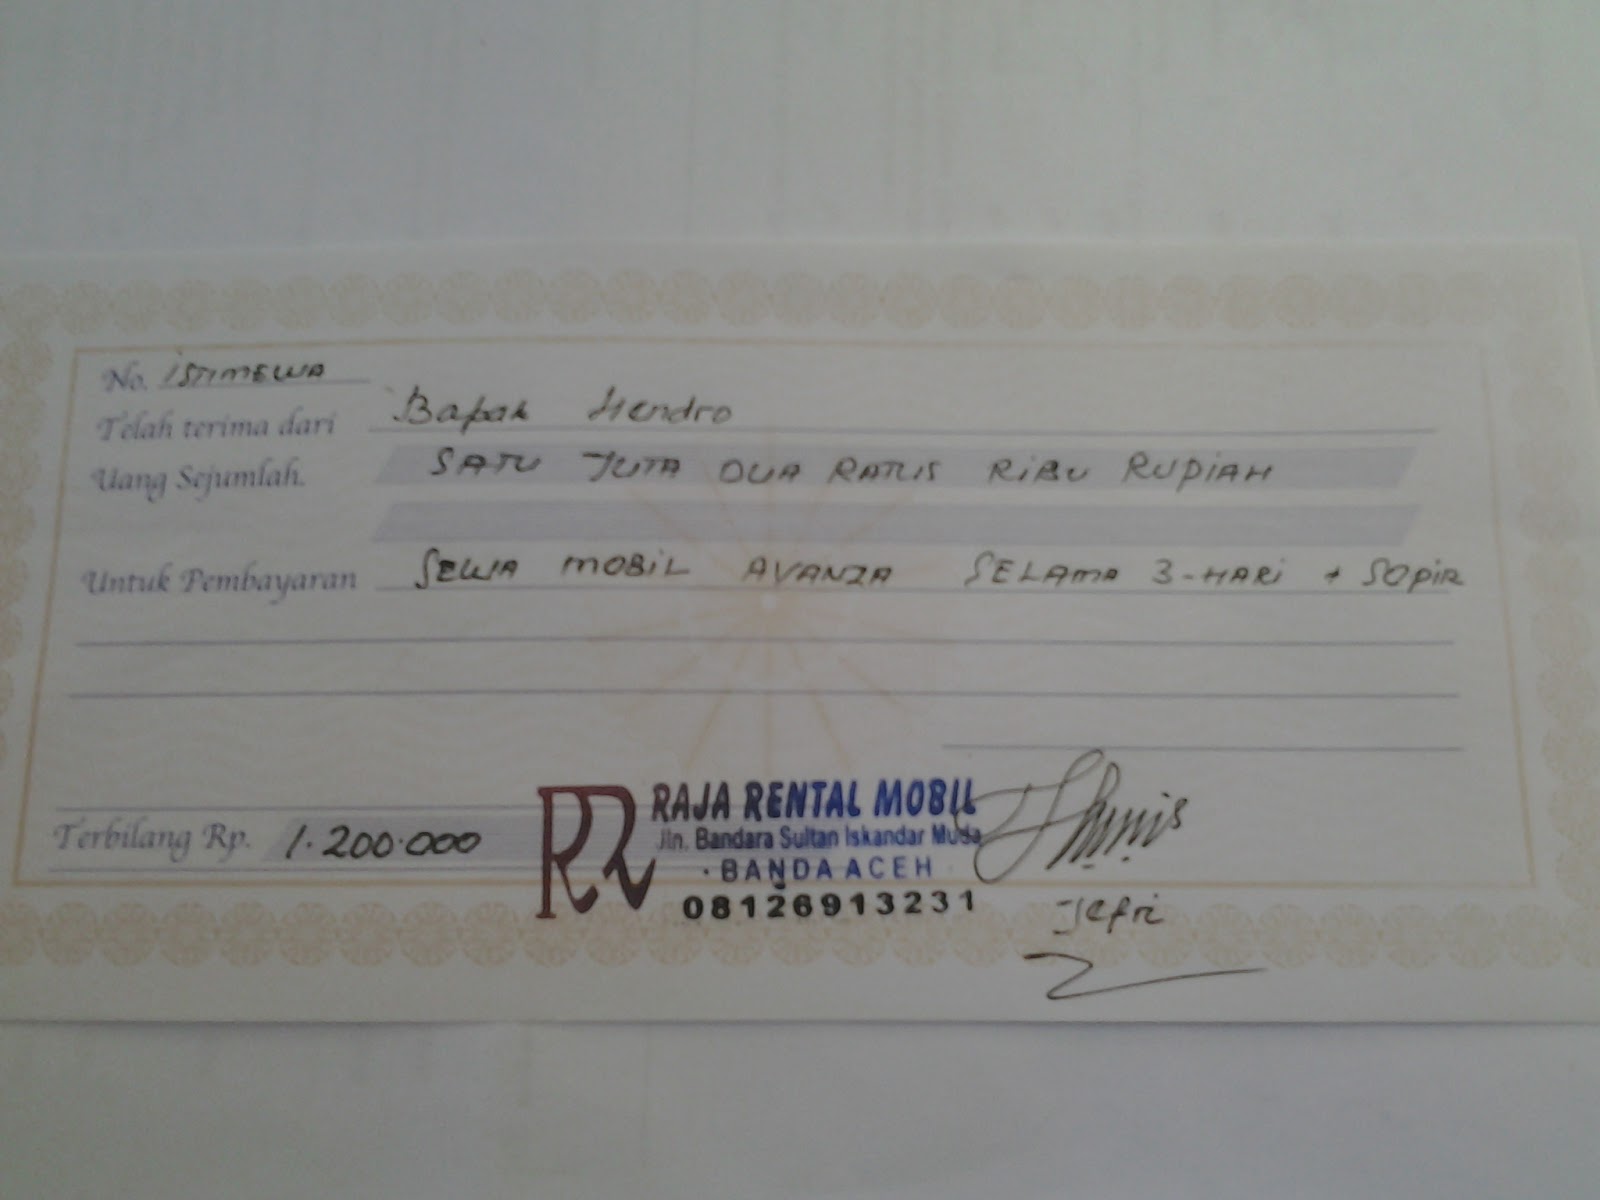 No. ISTIMEWA
Telah terima dari Bapak Hendro
Uang Sejumlah. SATU JUTA DUA RATUS RIBU RUPIAH
Untuk Pembayaran SEWA MOBIL AVANZA SELAMA 3-HARI + SOPIR
Terbilang Rp. 1.200.000
RR RAJA RENTAL MOBIL
Jln. Bandara Sultan Iskandar Muda
· BANDA ACEH ·
08126913231
Jefri